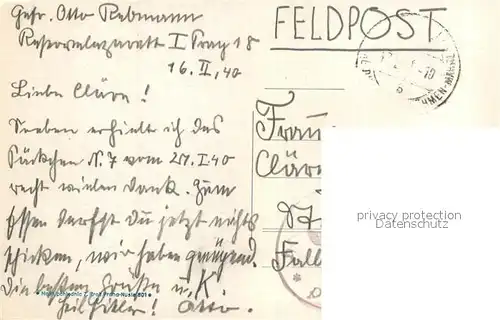 Gefr. Otto Rebmann
Reservelazarett I Prag 18
16.II.40
FELDPOST
Liebe Kläre!
Soeben erhielt ich das
Päckchen N. 7 vom 27.I.40
recht vielen Dank. Zum
Essen darfst du jetzt nichts
schicken, wir haben genügend.
Die besten Grüße u. K.
Heil Hitler! Otto.
Frau
Kläre
privacy protection
Datenschutz